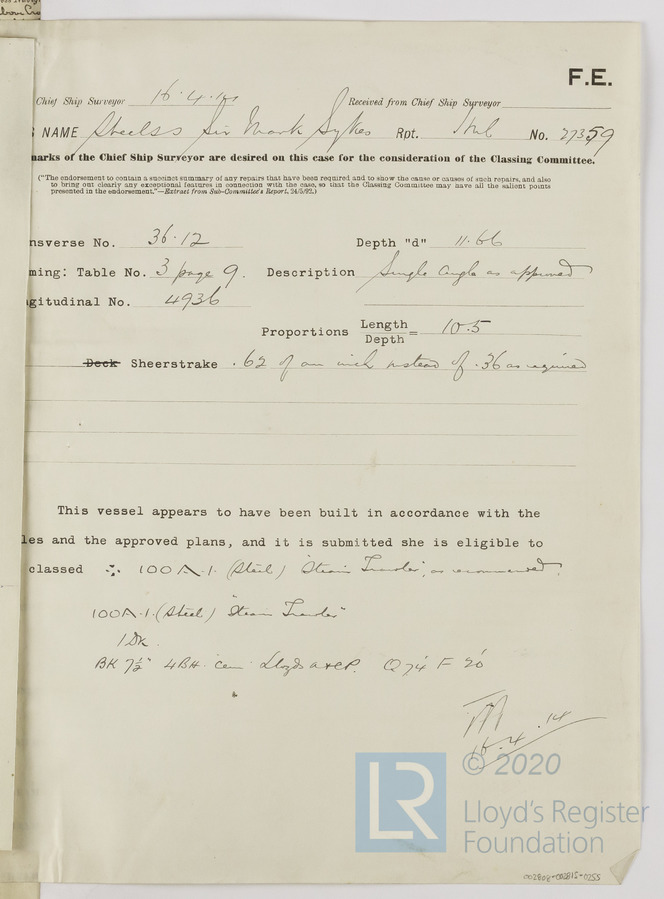 F.E.
Chief Ship Surveyor 16.4.14 Received from Chief Ship Surveyor
NAME Steel ss Sir Mark Sykes Rpt. Hul No. 27359
marks of the Chief Ship Surveyor are desired on this case for the consideration of the Classing Committee.
("The endorsement to contain a succinct summary of any repairs that have been required and to show the cause or causes of such repairs, and also
to bring out clearly any exceptional features in connection with the case, so that the Classing Committee may have all the salient points
presented in the endorsement."—Extract from Sub-Committee's Report, 24/5/92.)
nsverse No. 36.12 Depth "d" 11.66
ming: Table No. 3 page 9. Description Single angle as approved
gitudinal No. 4936
Proportions Length/Depth = 10.5
Deck Sheerstrake .62 of an inch instead of .36 as required
This vessel appears to have been built in accordance with the
les and the approved plans, and it is submitted she is eligible to
classed 100A.1. (Steel) "Steam Trawler", as recommended.
100A.1. (Steel) "Steam Trawler"
1 Dk.
BK 7½" 4BH Cem Lloyds A&CP. Q 74' F 20'
16.4.14
© 2020
LR
Lloyd's Register
Foundation
002808-002815-0255